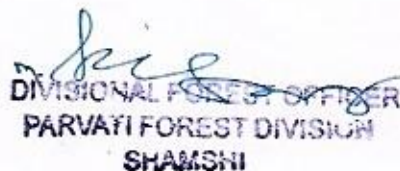 DIVISIONAL FOREST OFFICER
PARVATI FOREST DIVISION
SHAMSHI